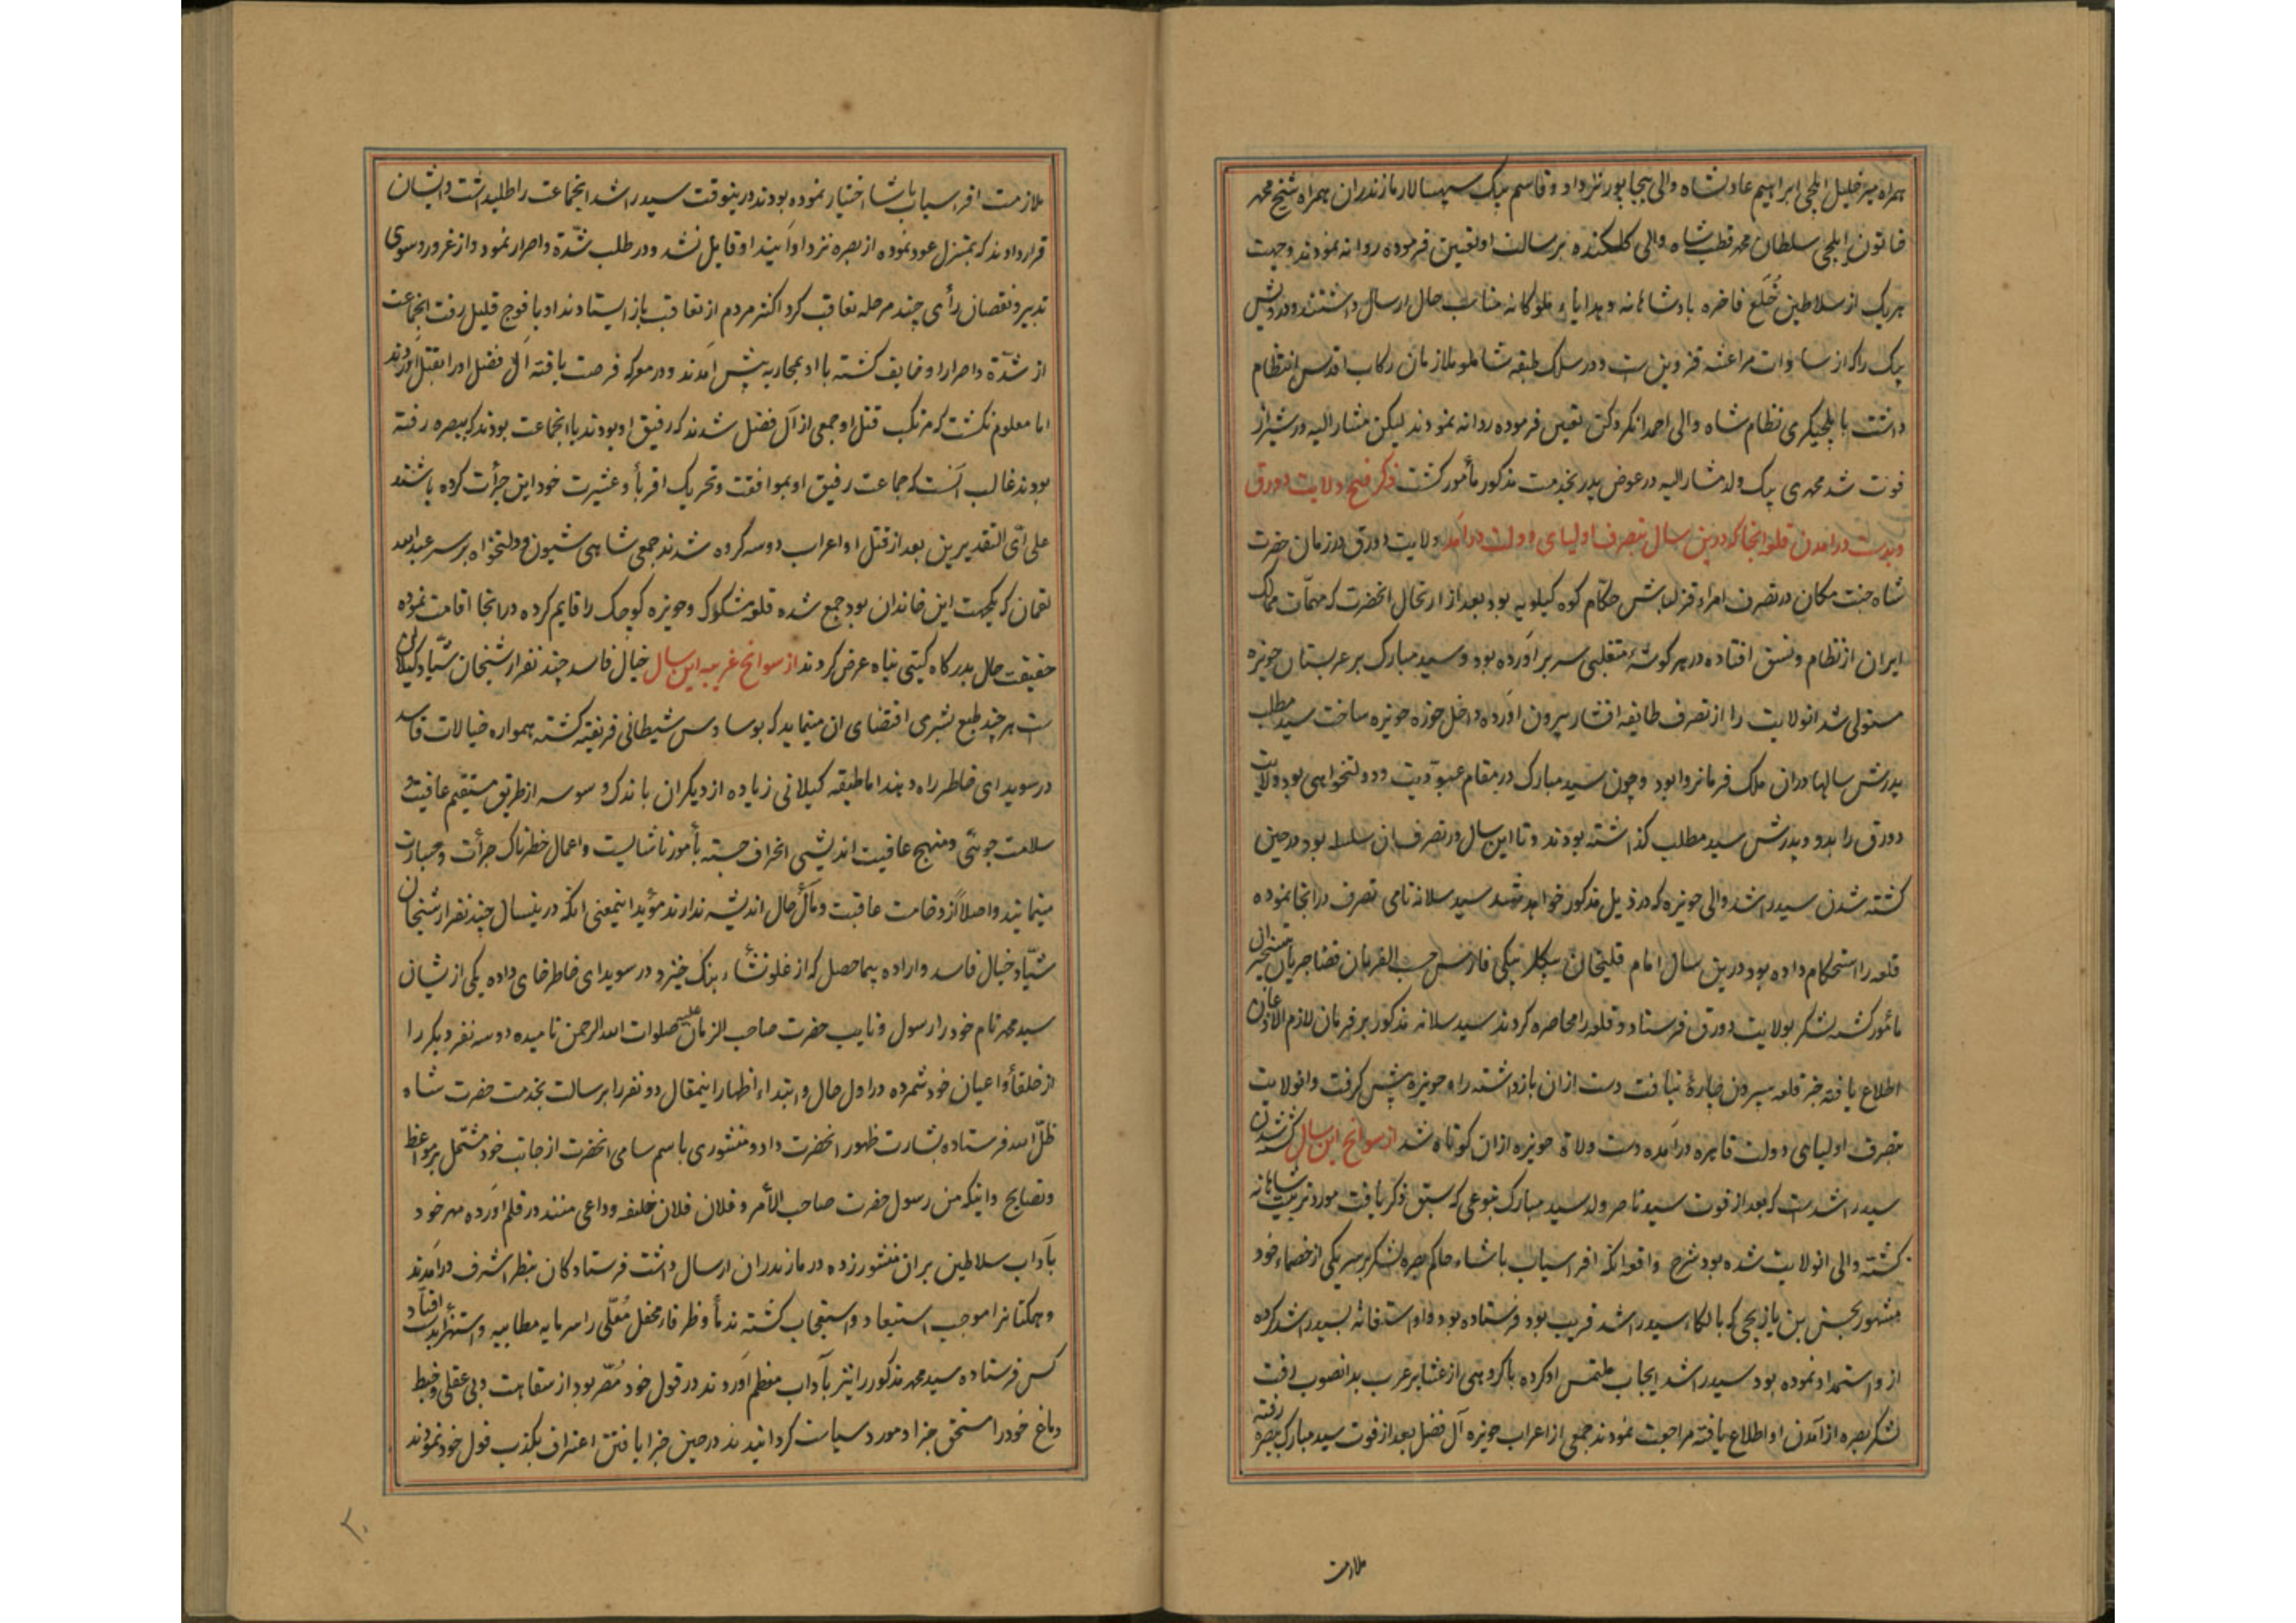 همراه میر خلیل ایلچی ابراهیم عادلشاه والی بیجاپور نزد او و قاسم بیک سپهسالار مازندران همراه شیخ محمد
خاتون ایلچی سلطان محمد قطب شاه والی کلکنده برسالت او تعیین فرموده روانه نمودند و جهت
هریک از سلاطین خلع فاخره پادشاهانه و هدایاء ملوکانه مناسب حال ارسال داشتند و درویش
بیک را که از سادات مراعشه قزوین است و در سلک طبقه شاملو ملازمان رکاب اقدس انتظام
داشت بایلچیکری نظام شاه والی احمدنکر دکن تعیین فرموده روانه نمودند لیکن مشار الیه در شیراز
فوت شد محمدی بیک ولد مشار الیه در عوض پدر بخدمت مذکور مأمور کشت ذکر فتح ولایت دورق
وبدست درامدن قلعه انجا که درین سال بتصرف اولیای دولت درامد ولایت دورق در زمان حضرت
شاه جنت مکان در تصرف امراء قزلباش حکام کوه کیلویه بود بعد از ارتحال انحضرت که مهمات ممالک
ایران از نظام و نسق افتاده در هر کوشه متغلبی سر برآورده بود و سید مبارک بر عربستان حویزه
مستولی شد انولایت را از تصرف طایفه افشار بیرون اورده داخل حوزه حویزه ساخت سید مطلب
پدرش سالها دران ملک فرمانروا بود و چون سید مبارک در مقام عبودیت و دولتخواهی بود ولایت
دورق را بدو و پدرش سید مطلب کذاشته بودند و تا این سال در تصرف ان سلسله بود در حین
کشته شدن سید راشد والی حویزه که در ذیل مذکور خواهد شد سید سلانه نامی تصرف درانجا نموده
قلعه را استحکام داده بود درین سال امام قلیخان بیکلربیکی فارس حسب الفرمان قضا جریان بتسخیر ان
مأمور کشته لشکر بولایت دورق فرستاد و قلعه را محاصره کردند سید سلانه مذکور بر فرمان لازم الاذعان
اطلاع یافته جز قلعه سپردن چاره نیافت دست ازان بازداشته راه حویزه پیش کرفت و انولایت
بتصرف اولیای دولت قاهره درآمده دست ولاة حویزه ازان کوتاه شد از سوانح این سال کشته شدن
سید راشدست که بعد از فوت سید ناصر ولد سید مبارک بنوعی که سبق ذکر یافت مورد تربیت شاهانه
کشته والی انولایت شده بود شرح واقعه انکه افراسیاب پاشاء حاکم بصره لشکر بر سر یکی از خصماء خود
مشهور بحسن بن یازیچی که بالکاء سید راشد قریب بود فرستاده بود و او استغاثه بسید راشد کرده
ازو استمداد نموده بود سید راشد ایجاب ملتمس او کرده با کروهی از عشایر عرب بدانصوب رفت
لشکر بصره از آمدن او اطلاع یافته مراجعت نمودند جمعی از اعراب حویزه آل فضل بعد از فوت سید مبارک ببصره رفته
ملازمت
ملازمت افراسیاب پاشا اختیار نموده بودند درینوقت سید راشد انجماعت را طلبداشت و ایشان
قرار دادند که بمنزل عود نموده از بصره نزد او آیند او قایل نشد و در طلب شدة و اصرار نمود و از غرور و سوی
تدبیر و نقصان رأی چند مرحله تعاقب کرد اکثر مردم از تعاقب باز ایستادند او با فوج قلیل رفت انجماعت
از شدة و اصرار او خایف کشته با او بمحاربه پیش آمدند و در معرکه فرصت یافته آل فضل او را بقتل آوردند
اما معلوم نکشت که مرتکب قتل او جمعی از آل فضل شدند که رفیق او بودند یا انجماعت بودند که ببصره رفته
بودند غالب آنست که جماعت رفیق او بموافقت و تحریک اقربا و عشیرت خود این جرأت کرده باشند
علی أی التقدیرین بعد از قتل او اعراب دو سه کروه شدند جمعی شاهی شیون و دولتخواه بر سر عبدالله
لقمان که یکجهت این خاندان بود جمع شده قلعه مشکوک و حویزه کوچک را قایم کرده درانجا اقامت نموده
حقیقت حال بدرکاه کیتی پناه عرض کردند از سوانح غریبه این سال خیال فاسد چند نفر از شیخان شیاد کیلان
است هر چند طبع بشری اقتضای ان مینماید که بوساوس شیطانی فریفته کشته همواره خیالات فاسد
در سویدای خاطر راه دهند اما طبقه کیلانی زیاده از دیکران باندک وسوسه از طریق مستقیم عافیت و
سلامت جویی و منهج عاقبت اندیشی انحراف جسته بأمور ناشایست و اعمال خطرناک جرأت و جسارت
مینمایند و اصلا از وخامت عاقبت و مآل حال اندیشه ندارند مؤید اینمعنی انکه درینسال چند نفر از شیخان
شیاد خیال فاسد و اراده بیماحصل که از غلو نشأء بنک خیزد در سویدای خاطر جای داده یکی ازیشان
سید محمد نام خود را رسول و نایب حضرت صاحب الزمان علیه صلوات الله الرحمن نامیده دو سه نفر دیکر را
از خلفا و اعیان خود شمرده در اول حال و ابتداء اظهار اینمقال دو نفر را برسالت بخدمت حضرت شاه
ظل الله فرستاده بشارت ظهور انحضرت داد و منشوری باسم سامی انحضرت از جانب خود مشتمل بر مواعظ
و نصایح و اینکه من رسول حضرت صاحب الأمر و فلان فلان خلیفه و داعی منند در قلم آورده مهر خود
بآداب سلاطین بران منشور زده در مازندران ارسال داشت فرستادکان بنظر اشرف درآمدند
و همکنانرا موجب استبعاد و استعجاب کشته ندما و ظرفاء محفل معلی را سرمایه مطایبه و استهزا بدست افتاد
کس فرستاده سید محمد مذکور را نیز بآداب معظم آوردند در قول خود مصر بود از سفاهت و بی عقلی و خبط
دماغ خود را مستحق جزا و مورد سیاست کردانیدند در حین جزا یافتن اعتراف بکذب قول خود نمودند
۲۰